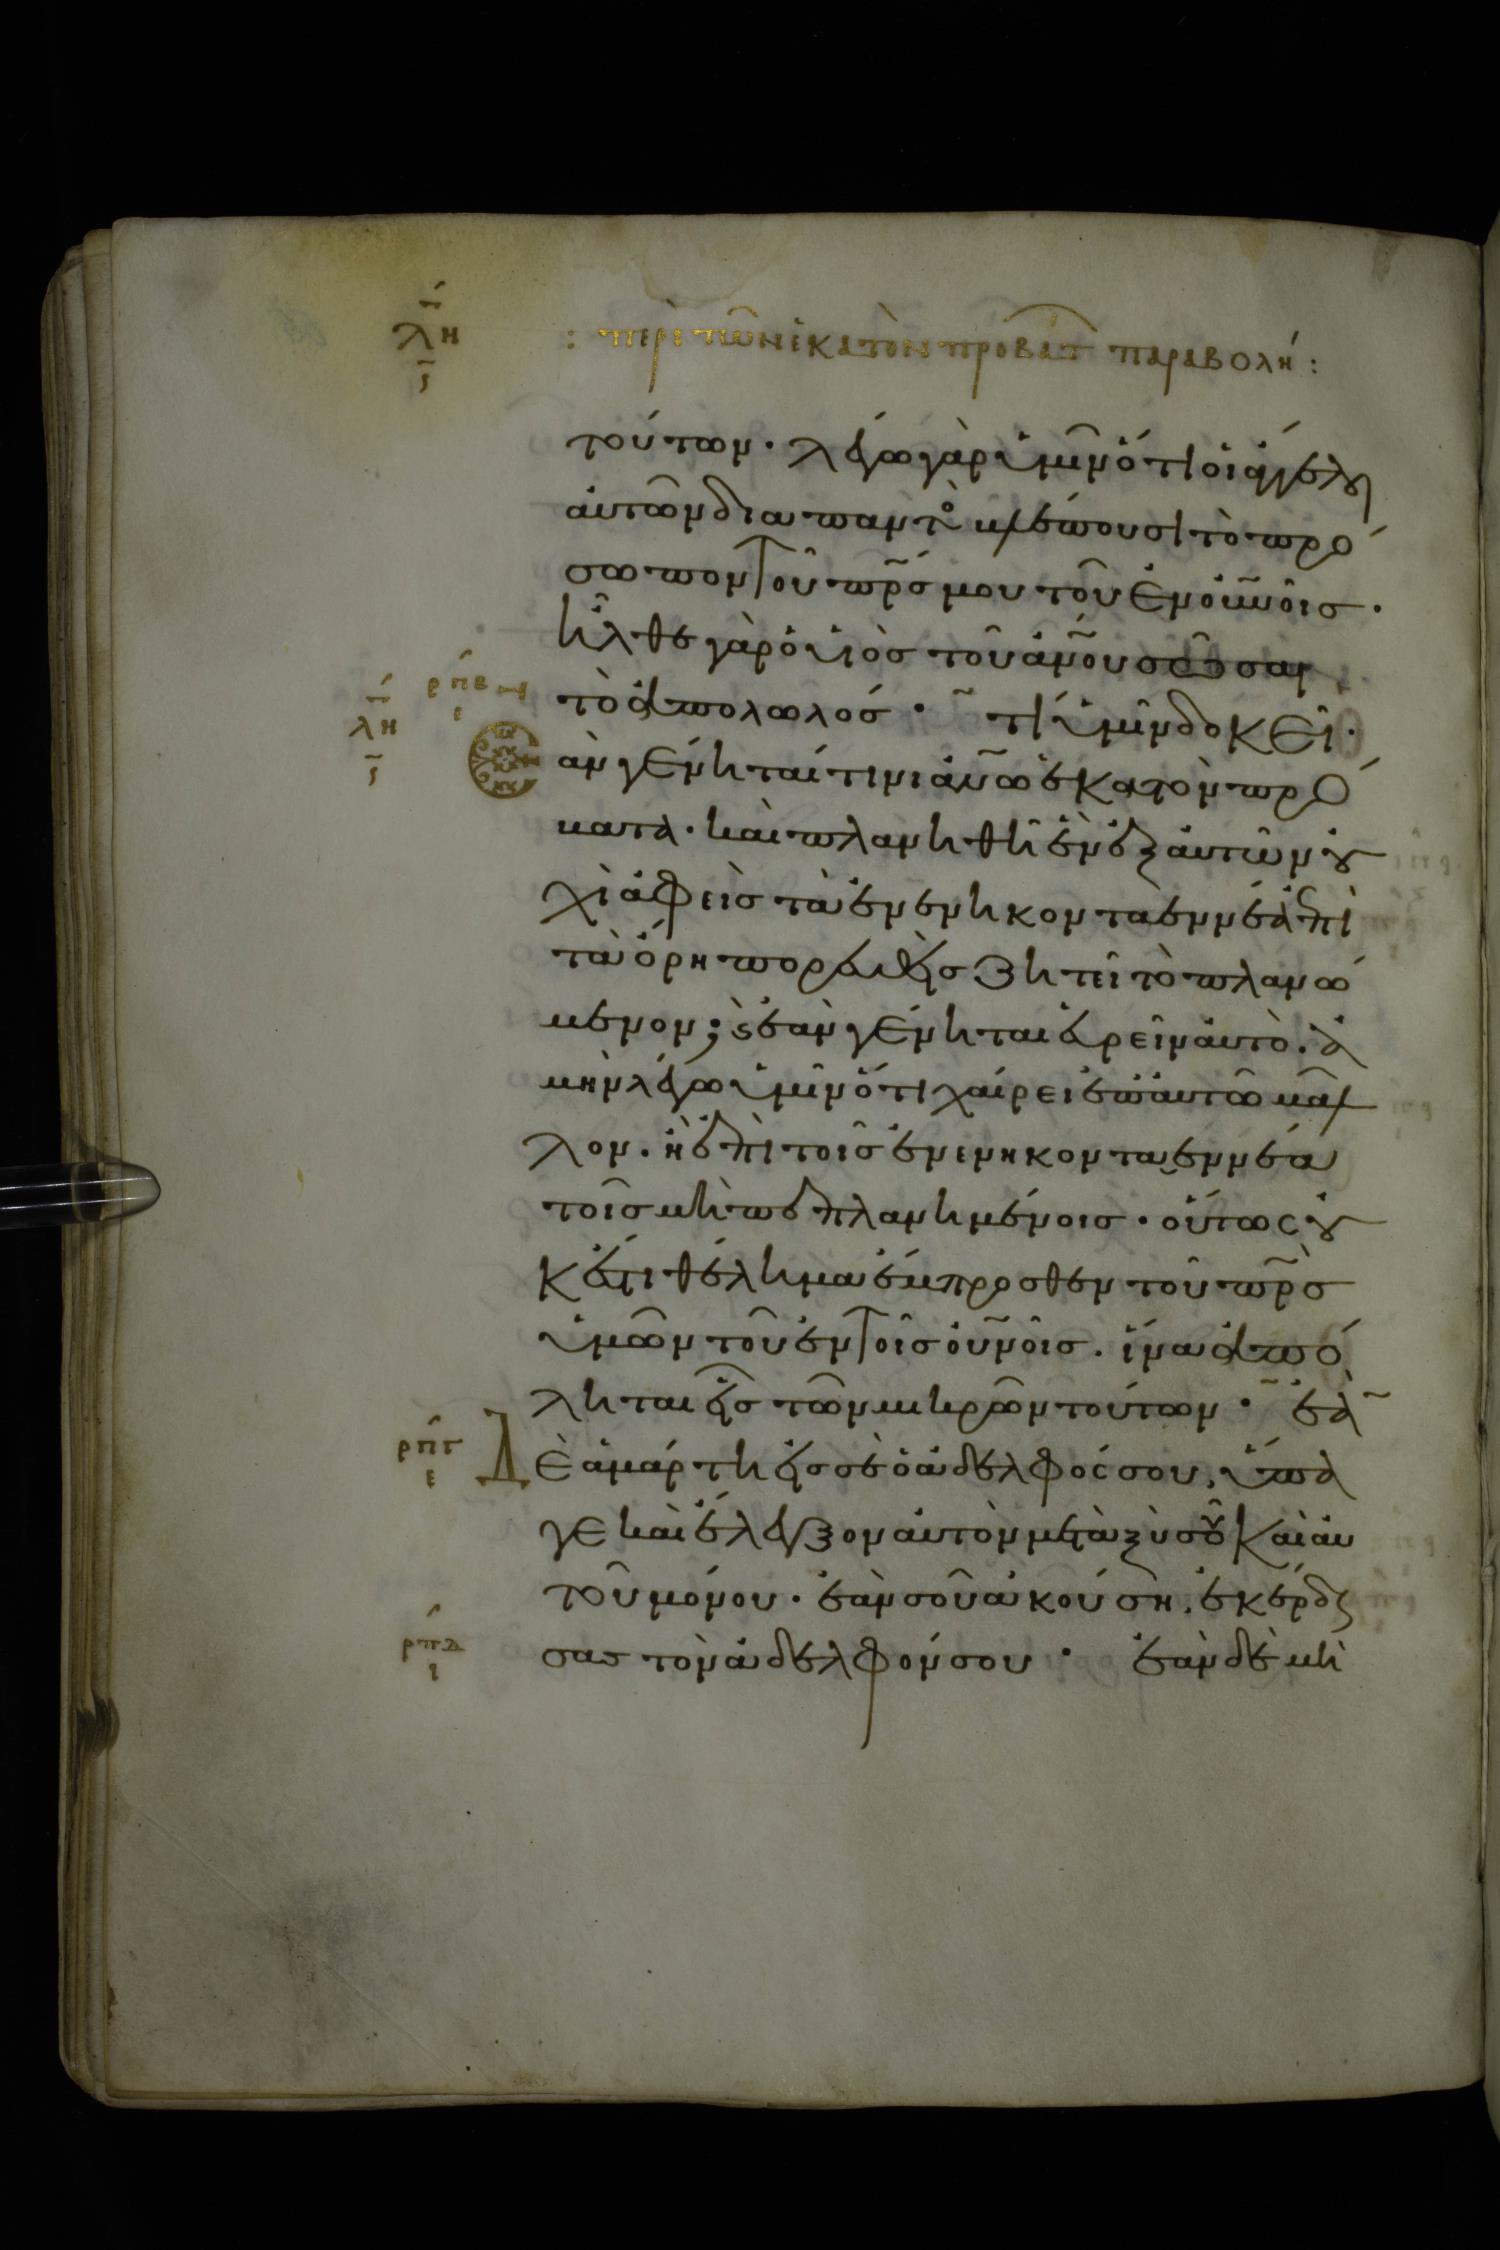 λη
ϛ
: περὶ τῶν ἑκατὸν προβάτ παραβολή :
τούτων · λέγω γὰρ ὑμῖν ὅτι οἱ ἄγγελοι
αὐτῶν διαπαντὸ βλέπουσι τὸ πρό
σωπον τοῦ πρ̅ς μου τοῦ ἐν οὐ̅νοῖς ·
ἦλθε γὰρ ὁ υἱὸς τοῦ ἀν̅ου σῶσαι
ρπβ
ε
τὸ ἀπολωλός · τί ὑμῖν δοκεῖ ·
λη
ϛ
ἐὰν γένηταί τινι ἀν̅ω ἑκατὸν πρό
βατα · καὶ πλανηθῆ ἓν ἐξ αὐτῶν οὐ
χὶ ἀφεὶς τὰ ἐνενηκονταεννέα ἐπὶ
τὰ ὄρη πορευθεὶς ζητεῖ τὸ πλανώ
μενον ; κ ἐὰν γένηται εὑρεῖν αὐτὸ · ἀ
μὴν λέγω ὑμῖν ὅτι χαίρει ἐπ αὐτῶ μᾶλ
λον · ἢ ἐπὶ τοῖς ἐνενηκονταεννέα
τοῖς μὴ πεπλανημένοις · οὕτως οὐ
κ ἔστι θέλημα ἔμπροσθεν τοῦ πρ̅ς
ὑμῶν τοῦ ἐν τοῖς οὐ̅νοῖς · ἵνα ἀπό
ληται εἷς τῶν μικρῶν τούτων · ἐὰ
ρπγ
ε
Δὲ ἁμάρτη εἰς σὲ ὁ ἀδελφός σου, ὕπα
γε καὶ ἔλεγξον αὐτὸν μεταξὺ σοῦ καὶ αὐ
τοῦ μόνου · ἐάν σου ἀκούση, ἐκέρδη
ρπδ
ι
σας τὸν ἀδελφόν σου · ἐὰν δὲ μὴ